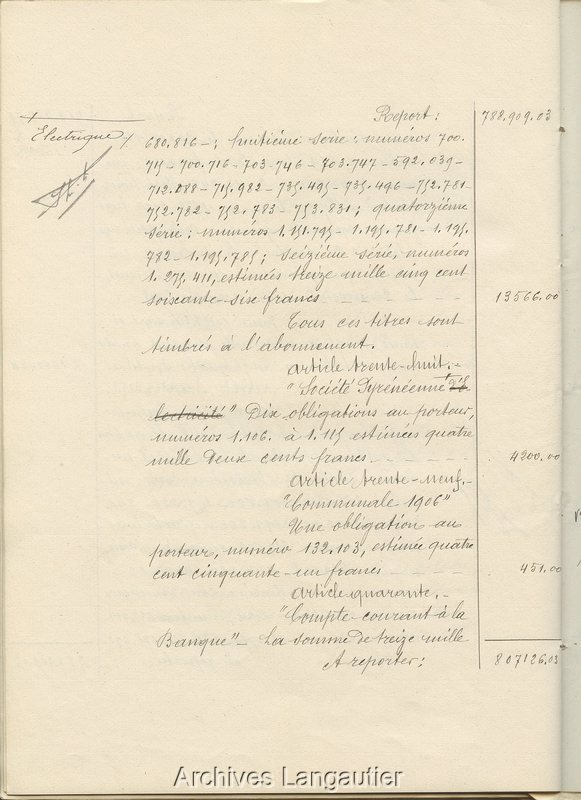 Report: 788.909.03
Electrique
680.816-; huitième série: numéros 700.
715-700.716-703-746-703.747-592.039-
712.088-715.982-735.495-735.496-752.781
752.782-752.783-753.831; quatorzième
série: numéros 1.151.795-1.195.781-1.195.
782-1.195.785; seizième série, numéros
1.275.411, estimés treize mille cinq cent
soixante six francs 13566.00
Tous ces titres sont
timbrés à l'abonnement.
article trente-huit.-
"Société Pyrénéenne d'E
lectricité" Dix obligations au porteur,
numéros 1.106. à 1.115 estimées quatre
mille Deux cents francs 4200.00
article trente-neuf.-
"Communale 1906"
Une obligation au
porteur, numéro 132.103, estimée quatre
cent cinquante-un francs 451.00
article quarante.-
"Compte courant à la
Banque"- La somme de treize mille
A reporter: 807126.03
Archives Langautier